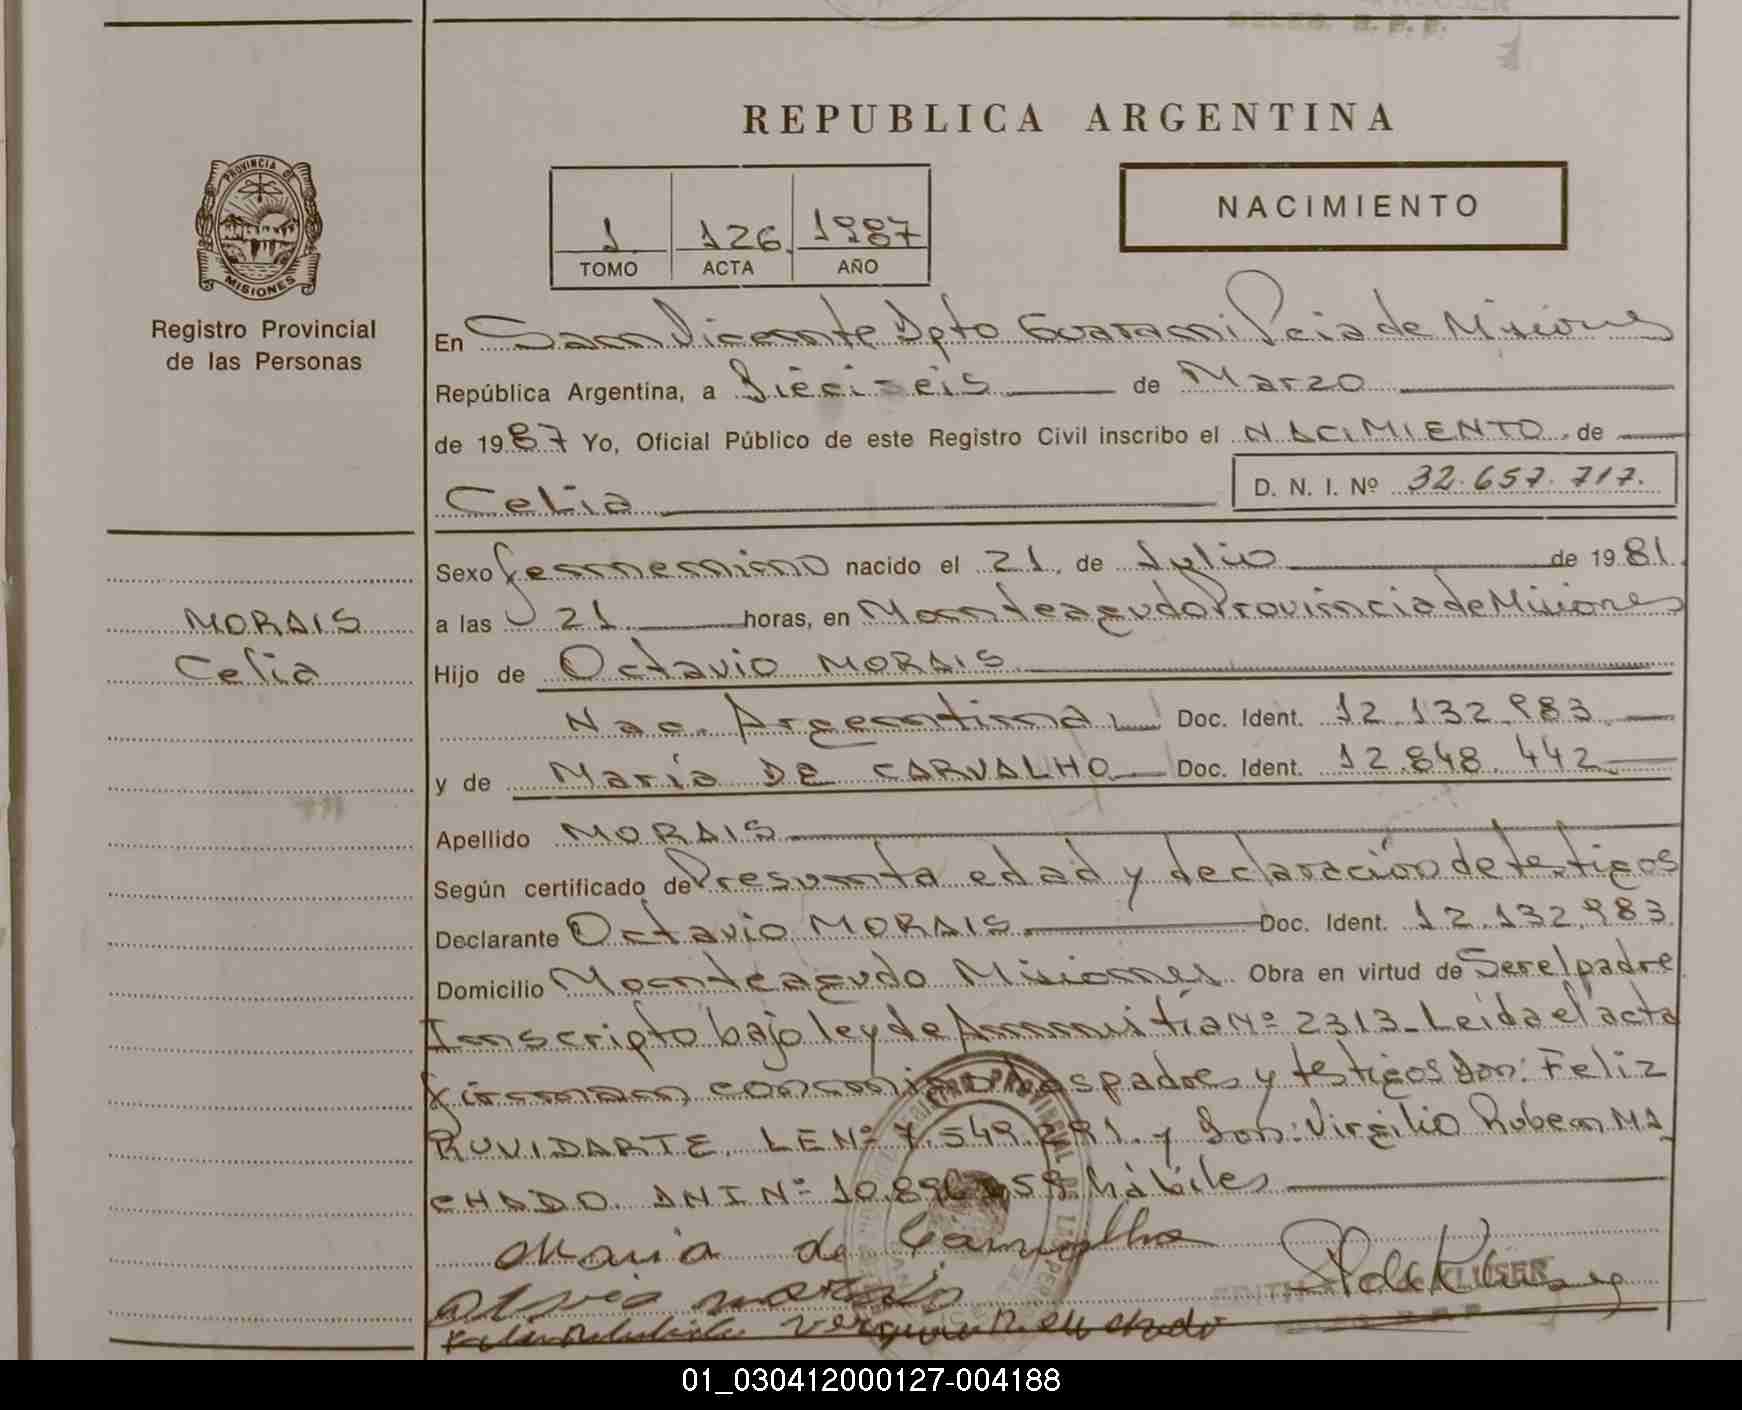 REPUBLICA ARGENTINA
PROVINCIA DE
MISIONES
Registro Provincial
de las Personas
1 126 1987
TOMO ACTA AÑO
NACIMIENTO
En San Vicente Dpto Guarani Pcia de Misiones
República Argentina, a Dieciseis de Marzo
de 1987 Yo, Oficial Público de este Registro Civil inscribo el NACIMIENTO de
Celia D. N. I. Nº 32.657.717.
MORAIS
Celia
Sexo femenino nacido el 21 de Julio de 1981
a las 21 horas, en Monteagudo Provincia de Misiones
Hijo de Octavio MORAIS
Nac. Argentina Doc. Ident. 12.132.983
y de María DE CARVALHO Doc. Ident. 12.848.442
Apellido MORAIS
Según certificado de Presunta edad y declaración de testigos
Declarante Octavio MORAIS Doc. Ident. 12.132.983
Domicilio Monteagudo Misiones Obra en virtud de Ser el padre
Inscripto bajo ley de Amnistía Nº 2313_ Leida el acta
firman conmigo los padres y testigos Don: Feliz
RUVIDARTE LE Nº 7.549.291. y Don: Virgilio Ruben MA_
CHADO DNI Nº 10.896 59 hábiles
Maria de Carvalho
KLUSER
01_030412000127-004188